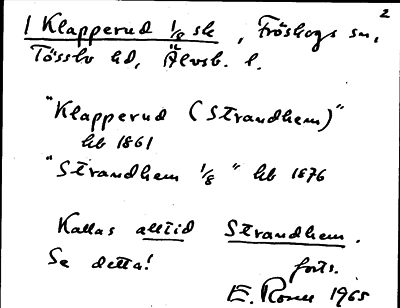 2
1 Klapperud 1/8 sk, Fröskogs sn,
Tössbo hd, Älvsb. l.
"Klapperud (Strandhem)"
hb 1861
"Strandhem 1/8" hb 1876
Kallas alltid Strandhem.
Se detta!
forts.
E. Rosell 1965